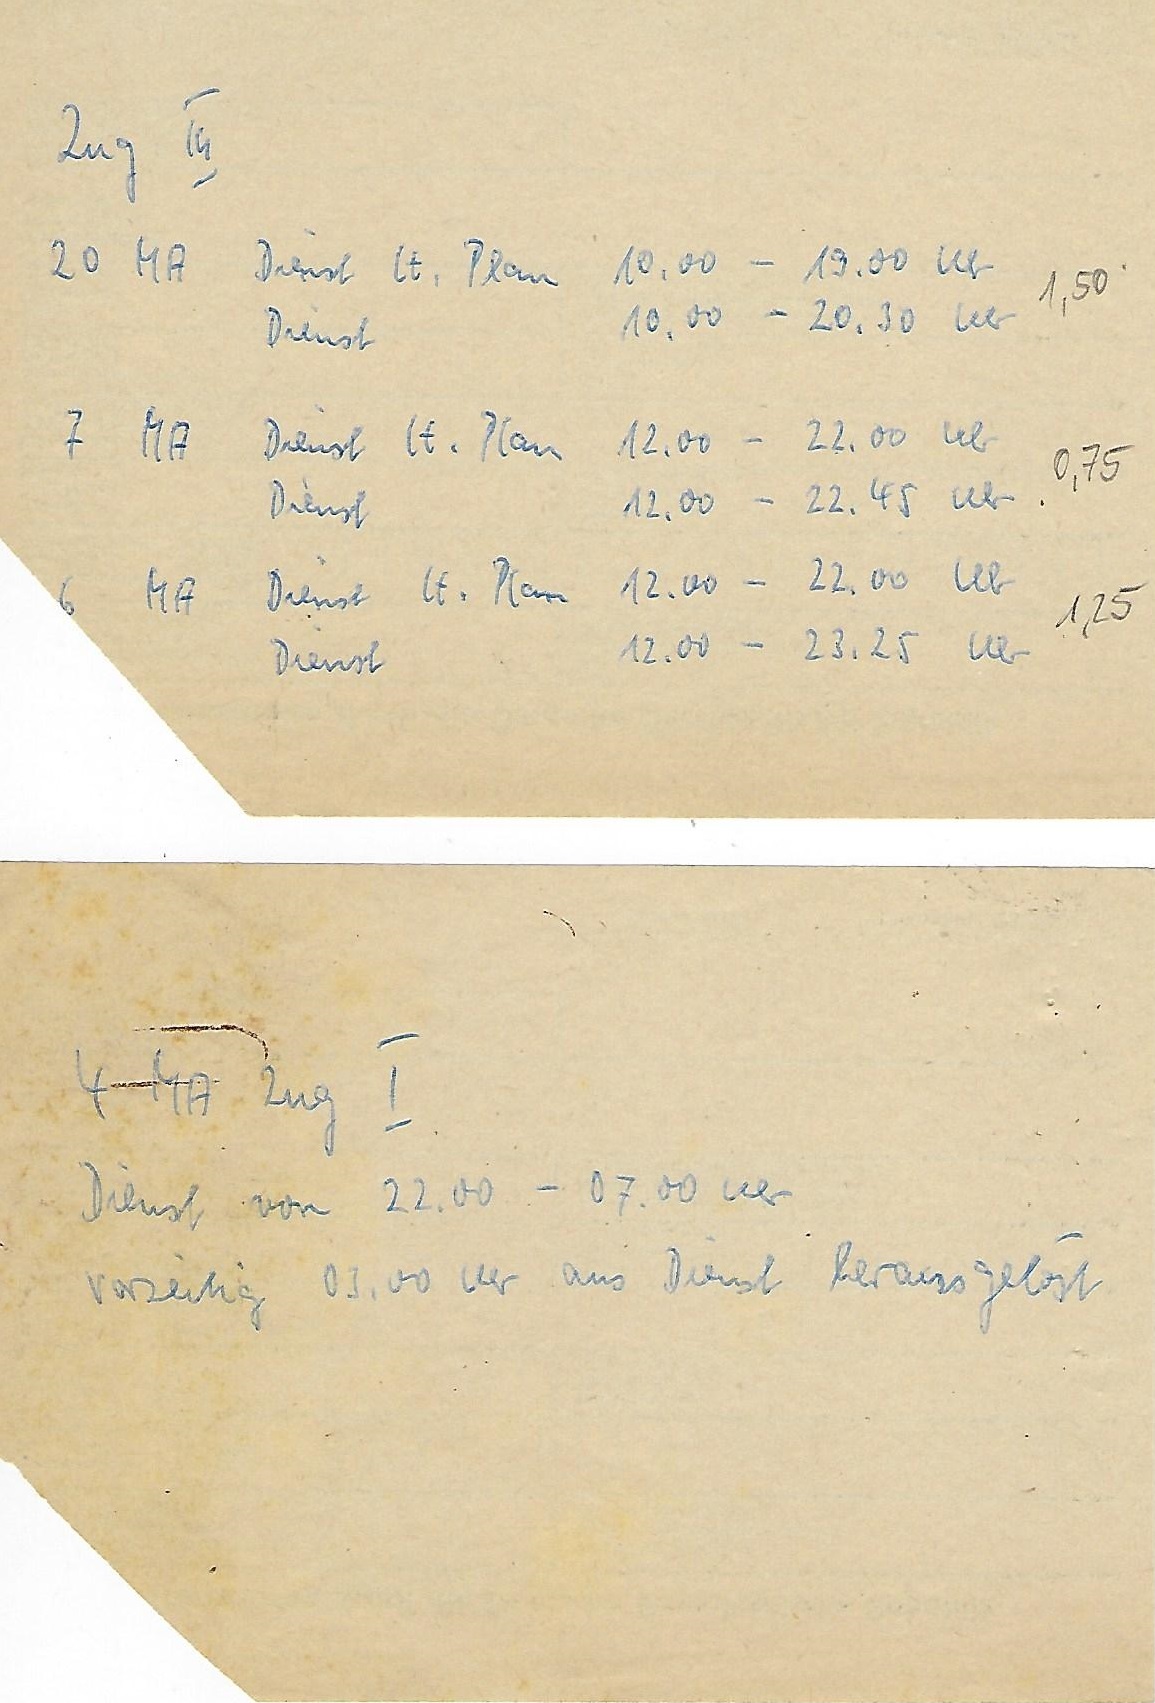 Zug III
20 MA Dienst lt. Plan 10.00 - 19.00 Uhr
1,50
Dienst 10.00 - 20.30 Uhr
7 MA Dienst lt. Plan 12.00 - 22.00 Uhr
0,75
Dienst 12.00 - 22.45 Uhr
6 MA Dienst lt. Plan 12.00 - 22.00 Uhr
1,25
Dienst 12.00 - 23.25 Uhr
4 MA Zug I
Dienst von 22.00 - 07.00 Uhr
vorzeitig 03.00 Uhr aus Dienst herausgelöst